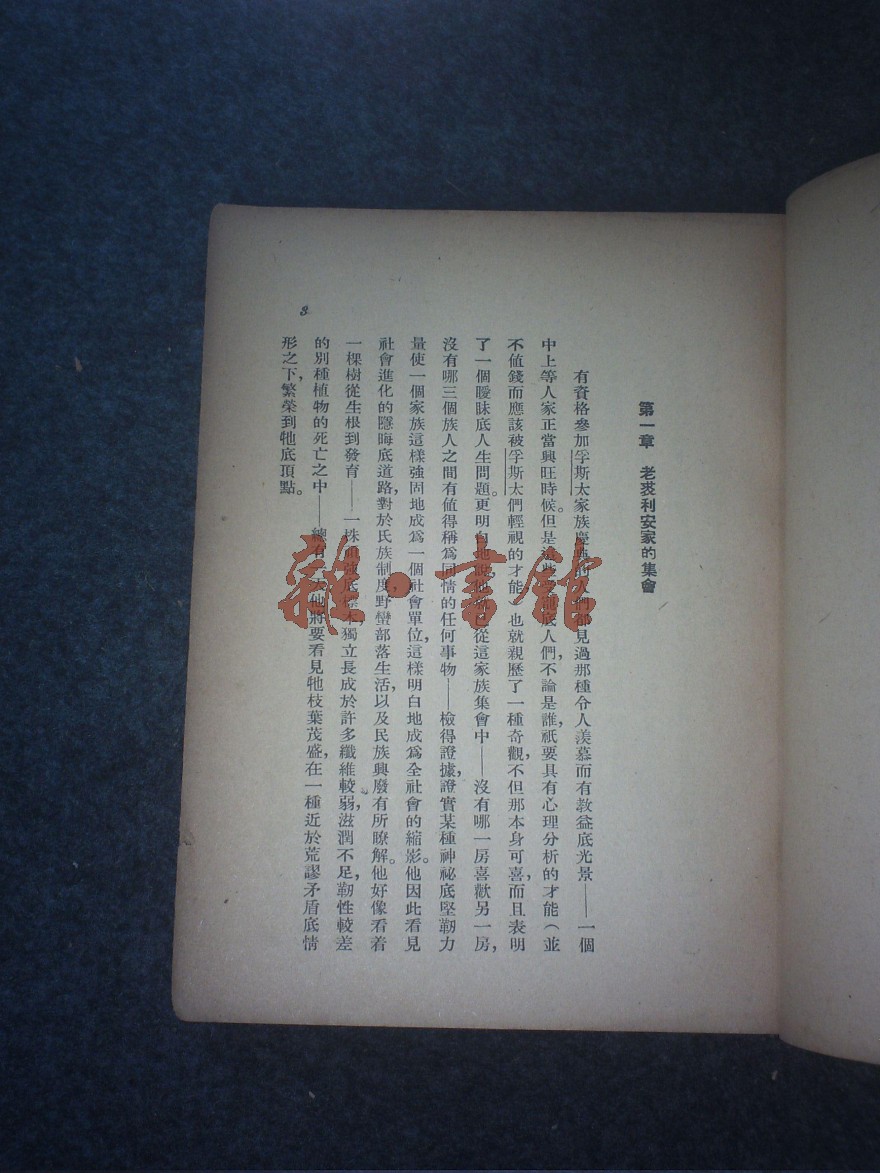 第一章　老裘利安家的集會
有資格參加孚斯太家族慶典的人們都見過那種令人羨慕而有教益底光景——一個
中上等人家正當興旺時候。但是這些底人們,不論是誰,祇要具有心理分析的才能(並
不値錢而應該被孚斯太們輕視的才能)也就親歷了一種奇觀,不但那本身可喜,而且表明
了一個曖昧底人生問題。更明白地說,他就已從這家族集會中——沒有哪一房喜歡另一房,
沒有哪三個族人之間有値得稱爲同情的任何事物——檢得證據,證實某種神祕底堅韌力
量使一個家族這樣強固地成爲一個社會單位,這樣明白地成爲全社會的縮影。他因此看見
社會進化的隱晦底道路,對於氏族制度,野蠻部落生活,以及民族興廢有所瞭解。他好像看着
一棵樹從生根到發育——一株頑強底標本,獨立長成於許多纖維較弱,滋潤不足,韌性較差
的別種植物的死亡之中——總有一天他將要看見牠枝葉茂盛,在一種近於荒謬矛盾底情
形之下,繁榮到牠底頂點。
3
雜·書館